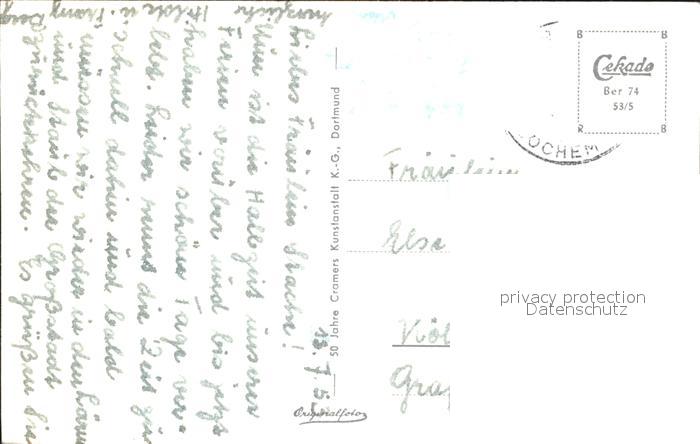 13. 7. 5
Liebes Fräulein Stachn!
Nun ist die Halbzeit unserer
Ferien vorüber und bis jetzt
haben wir schöne Tage ver-
lebt. Leider rennt die Zeit zu
schnell dahin und bald
müssen wir wieder in den Lärm
und Staub der Großstadt
zurückkehren. Es grüßen Sie
herzlichst
Hilde u. Franz
50 Jahre Cramers Kunstanstalt K.-G., Dortmund
Originalfoto
Cekade
Ber 74
53/5
B B
B B
COCHEM
Fräulein
Else
Köl
Gra
privacy protection
Datenschutz